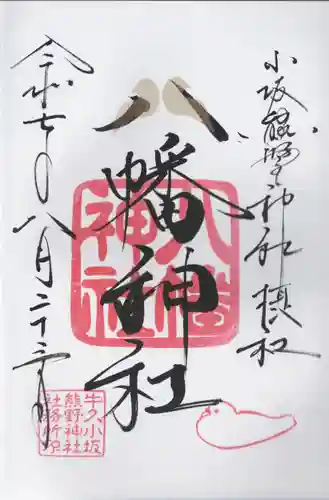 小坂熊野神社 摂社
八幡神社
八幡神社
令和七年八月二十三日
牛久小坂
熊野神社
社務所印